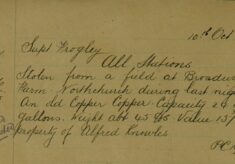 10th Oct
Supt Frogley
All Stations
Stolen from a field at Broadwa
Farm Northchurch during last nig
An old Copper Copper. Capacity 2
gallons. Weight abt 45 lbs Value 15/
property of Alfred Knowles
PC